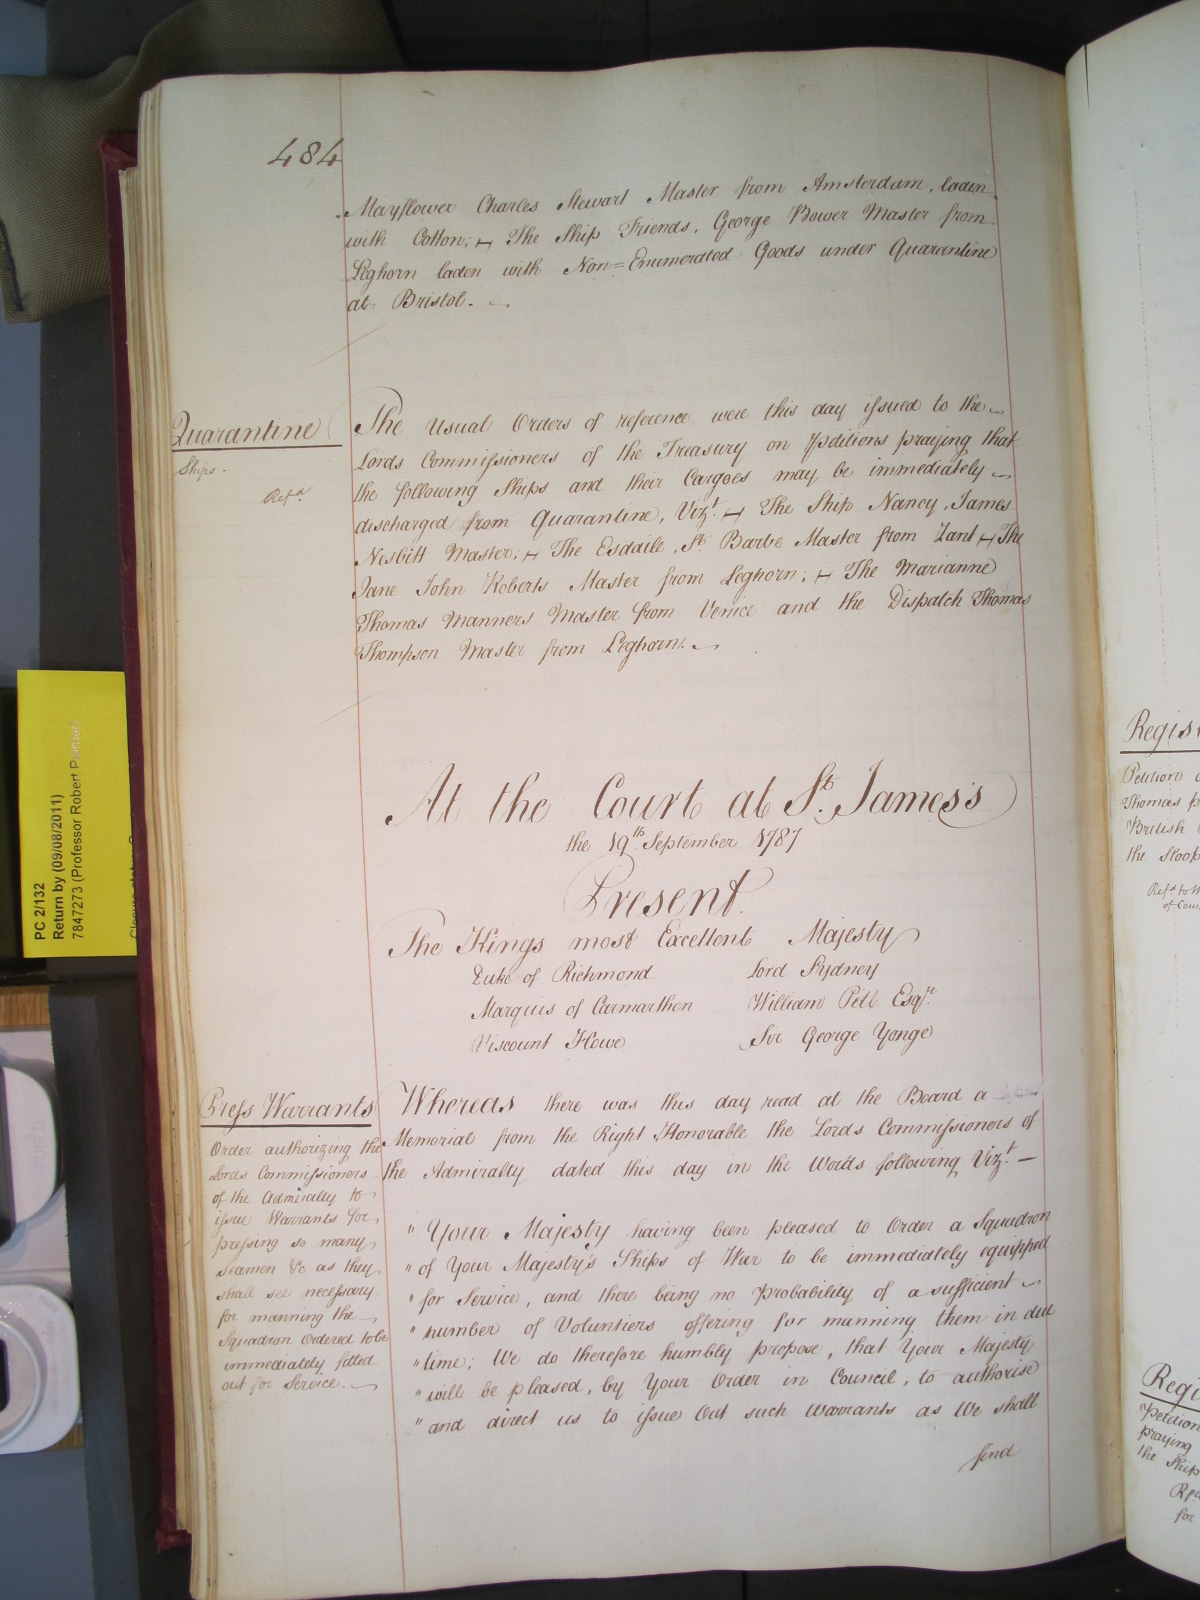 484
Mayflower Charles Stewart Master from Amsterdam, laden
with Cotton; The Ship Friends, George Bower Master from
Leghorn laden with Non=Enumerated Goods under Quarantine
at Bristol.
Quarantine
Ships
Ref.d
The Usual Orders of reference were this day issued to the
Lords Commissioners of the Treasury on Petitions praying that
the following Ships and their Cargoes may be immediately
discharged from Quarantine, Viz.t The Ship Nancy, James
Nesbitt Master; The Esdaile, St. Barbe Master from Zant The
Jane John Roberts Master from Leghorn; The Marianne
Thomas Manners Master from Venice and the Dispatch Thomas
Thompson Master from Leghorn.
At the Court at St. James's
the 19th September 1787
Present
The Kings most Excellent Majesty
Duke of Richmond Lord Sydney
Marquis of Carmarthen William Pitt Esqr.
Viscount Howe Sir George Yonge
Press Warrants
Order authorizing the
Lords Commissioners
of the Admiralty to
issue Warrants for
pressing so many
Seamen &c as they
shall see necessary
for manning the
Squadron Ordered to be
immediately fitted
out for Service.
Whereas there was this day read at the Board a
Memorial from the Right Honorable the Lords Commissioners of
the Admiralty dated this day in the Words following Viz.t —
" Your Majesty having been pleased to Order a Squadron
" of Your Majesty's Ships of War to be immediately equipped
" for Service, and there being no Probability of a sufficient
" number of Volunteers offering for manning them in due
" time; We do therefore humbly propose, that Your Majesty
" will be pleased, by Your Order in Council, to authorise
" and direct us to issue Out such Warrants as We shall
find
PC 2/132
Return by (09/08/2011)
7847273 (Professor Robert
Petition
Thomas
British
the Sloop
Petition
praying
the Ship
for